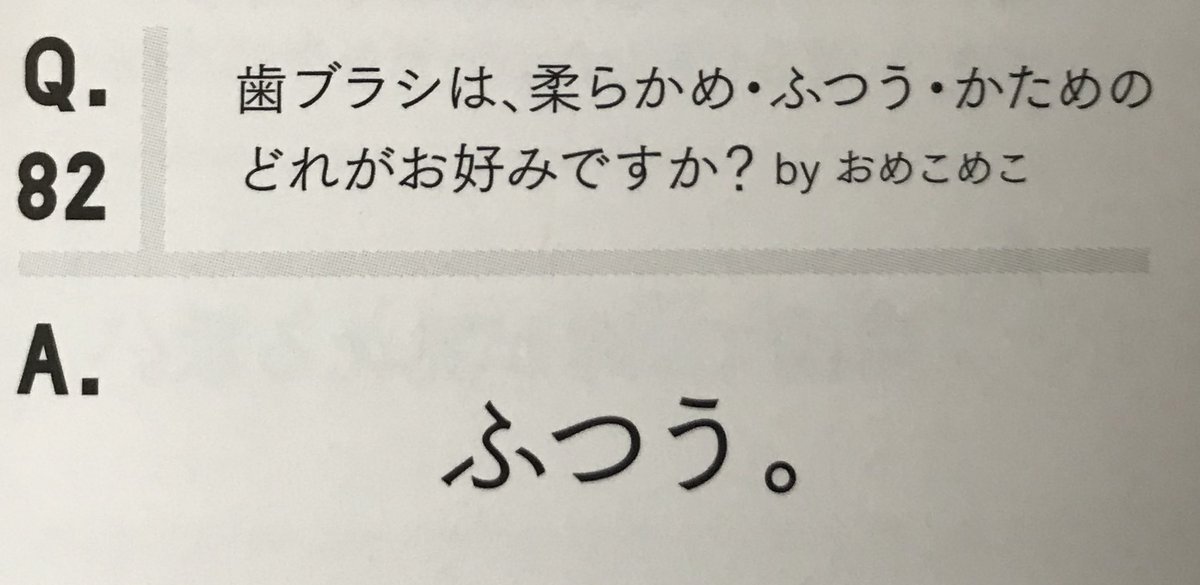 Q.
82
歯ブラシは、柔らかめ・ふつう・かための
どれがお好みですか? by おめこめこ
A.
ふつう。